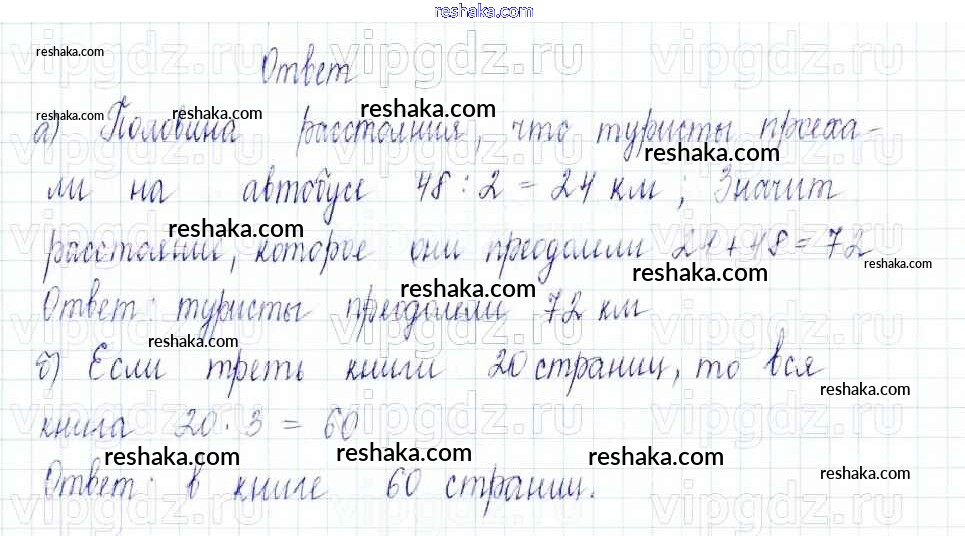 reshaka.com
reshaka.com
Ответ
reshaka.com reshaka.com reshaka.com
а) Половина расстояния, что туристы проеха-
reshaka.com
ли на автобусе 48 : 2 = 24 км ; Значит
reshaka.com
расстояние, которое они преодолели 24 + 48 = 72
reshaka.com reshaka.com
reshaka.com reshaka.com
Ответ : туристы преодолели 72 км
reshaka.com
б) Если треть книги 20 страниц, то вся
reshaka.com
книга 20 · 3 = 60
reshaka.com reshaka.com reshaka.com
reshaka.com
Ответ : в книге 60 страниц.